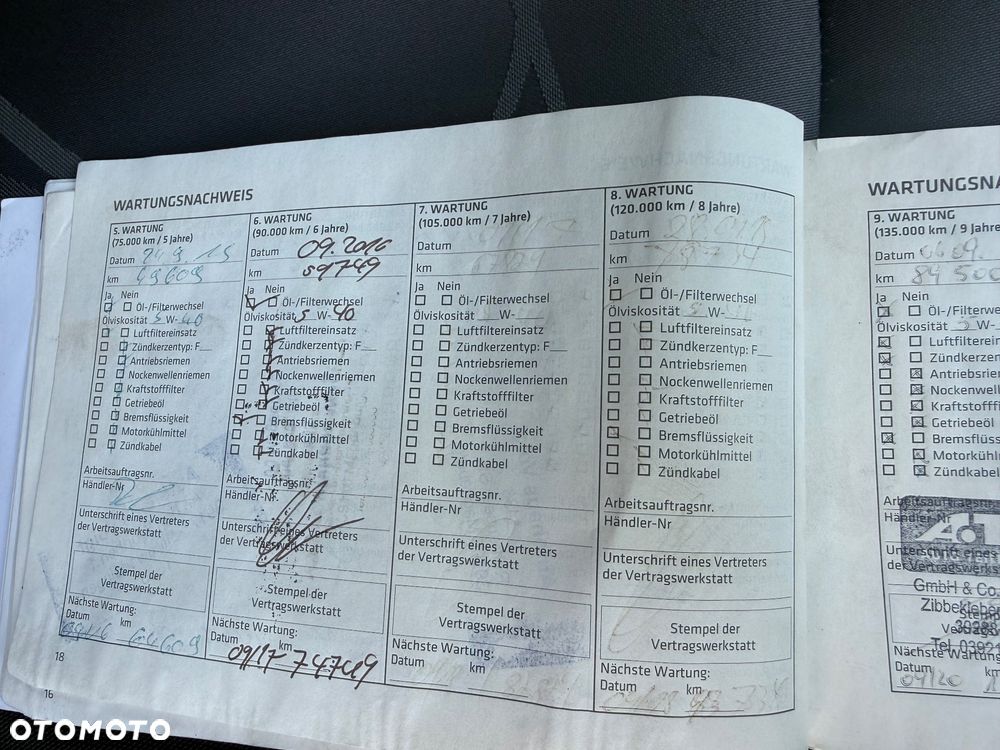 WARTUNGSNACHWEIS
5. WARTUNG
(75.000 km / 5 Jahre)
Datum 24.9.15
km 49609
Ja Nein
Öl-/Filterwechsel
Ölviskosität 5 W-40
Luftfiltereinsatz
Zündkerzentyp: F
Antriebsriemen
Nockenwellenriemen
Kraftstofffilter
Getriebeöl
Bremsflüssigkeit
Motorkühlmittel
Zündkabel
Arbeitsauftragsnr.
Händler-Nr
Unterschrift eines Vertreters
der Vertragswerkstatt
Stempel der
Vertragswerkstatt
Nächste Wartung:
Datum km
09/16 64609
6. WARTUNG
(90.000 km / 6 Jahre)
Datum 09.2016
km 59749
Ja Nein
Öl-/Filterwechsel
Ölviskosität 5 W-40
Luftfiltereinsatz
Zündkerzentyp: F
Antriebsriemen
Nockenwellenriemen
Kraftstofffilter
Getriebeöl
Bremsflüssigkeit
Motorkühlmittel
Zündkabel
Arbeitsauftragsnr.
Händler-Nr
Unterschrift eines Vertreters
der Vertragswerkstatt
Stempel der
Vertragswerkstatt
Nächste Wartung:
Datum km
09/17 74749
7. WARTUNG
(105.000 km / 7 Jahre)
Datum
km
Ja Nein
Öl-/Filterwechsel
Ölviskosität W-
Luftfiltereinsatz
Zündkerzentyp: F
Antriebsriemen
Nockenwellenriemen
Kraftstofffilter
Getriebeöl
Bremsflüssigkeit
Motorkühlmittel
Zündkabel
Arbeitsauftragsnr.
Händler-Nr
Unterschrift eines Vertreters
der Vertragswerkstatt
Stempel der
Vertragswerkstatt
Nächste Wartung:
Datum km
8. WARTUNG
(120.000 km / 8 Jahre)
Datum
km 78734
Ja Nein
Öl-/Filterwechsel
Ölviskosität 5 W-
Luftfiltereinsatz
Zündkerzentyp: F
Antriebsriemen
Nockenwellenriemen
Kraftstofffilter
Getriebeöl
Bremsflüssigkeit
Motorkühlmittel
Zündkabel
Arbeitsauftragsnr.
Händler-Nr
Unterschrift eines Vertreters
der Vertragswerkstatt
Stempel der
Vertragswerkstatt
Nächste Wartung:
Datum km
WARTUNGSNA
9. WARTUNG
(135.000 km / 9 Jahre
Datum
km 84500
Ja Nein
Öl-/Filterw
Ölviskosität 5 W-
Luftfiltere
Zündkerze
Antriebsri
Nockenwe
Kraftstoff
Getriebeö
Bremsflüss
Motorkühl
Zündkabel
Arbeitsauftragsnr
Händler-Nr
Unterschrift eines
der Vertragswerkst
GmbH & Co.
Zibbekleber
39288
Stemp
Vertrags
Tel. 03921
Nächste Wartung
Datum km
09/20
18
16
OTOMOTO